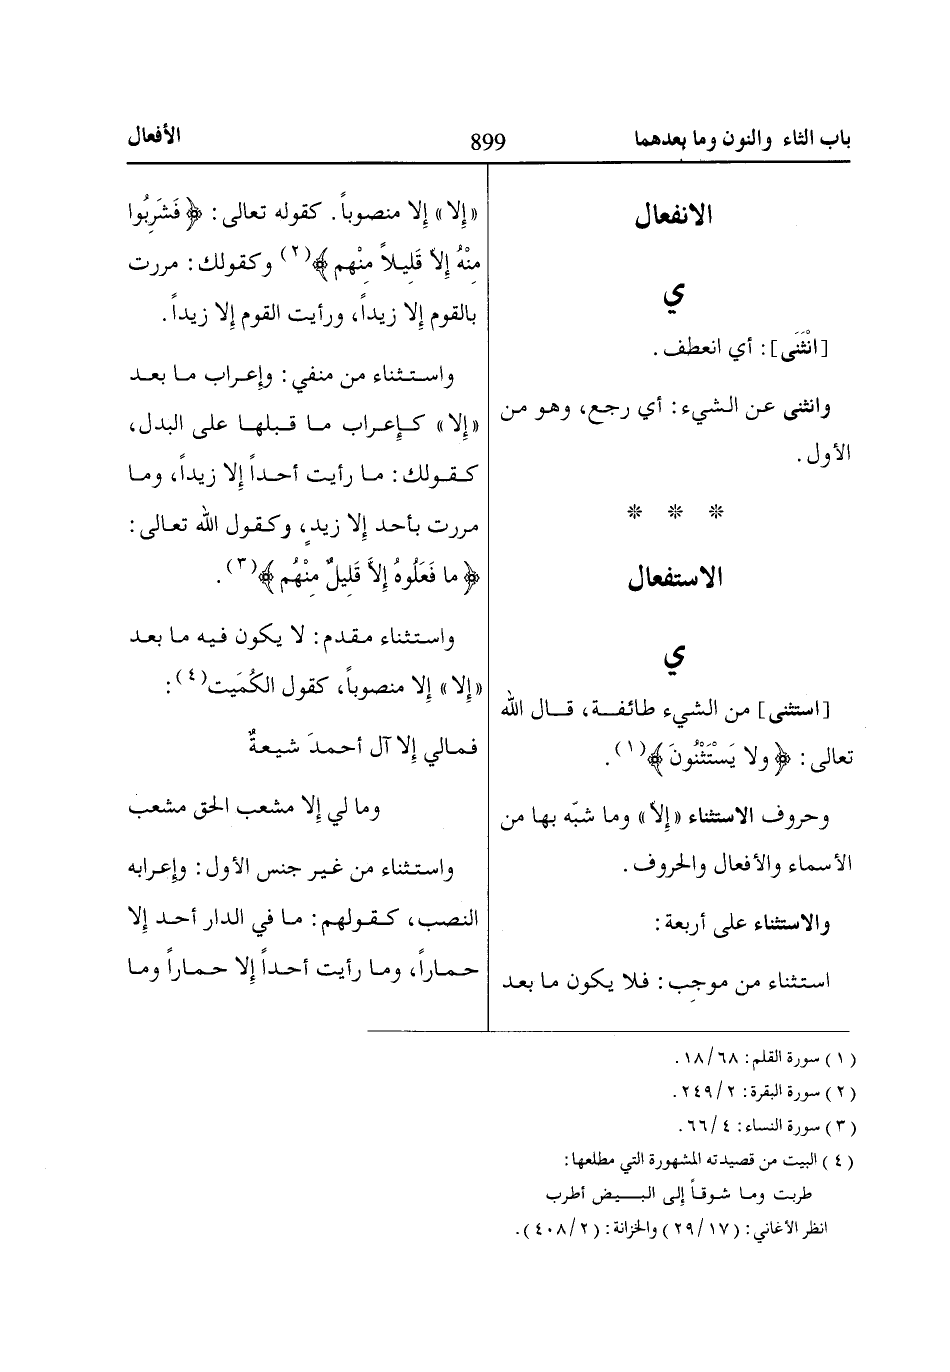 باب الثاء والنون وما بعدهما
899
الأفعال
الانفعال
ي
[انْثَنَى]: أي انعطف.
وانثنى عن الشيء: أي رجع، وهو من
الأول.
* * *
الاستفعال
ي
[استثنى] من الشيء طائفة، قال الله
تعالى: ﴿ولا يَسْتَثْنُونَ﴾(١).
وحروف الاستثناء «إِلاّ» وما شبّه بها من
الأسماء والأفعال والحروف.
والاستثناء على أربعة:
استثناء من موجب: فلا يكون ما بعد
«إِلا» إِلا منصوباً. كقوله تعالى: ﴿فَشَرِبُوا
مِنْهُ إِلاّ قَلِيلاً مِنْهم﴾(٢) وكقولك: مررت
بالقوم إِلا زيداً، ورأيت القوم إِلا زيداً.
واستثناء من منفي: وإِعراب ما بعد
«إِلا» كإِعراب ما قبلها على البدل،
كقولك: ما رأيت أحداً إِلا زيداً، وما
مررت بأحد إِلا زيدٍ، وكقول الله تعالى:
﴿ما فَعَلُوهُ إِلاَّ قَلِيلٌ مِنْهُم﴾(٣).
واستثناء مقدم: لا يكون فيه ما بعد
«إِلا» إِلا منصوباً، كقول الكُمَيت(٤):
فمالي إِلا آل أحمدَ شيعةٌ
وما لي إِلا مشعب الحق مشعب
واستثناء من غير جنس الأول: وإِعرابه
النصب، كقولهم: ما في الدار أحد إِلا
حماراً، وما رأيت أحداً إِلا حماراً وما
(١) سورة القلم: ٦٨/ ١٨.
(٢) سورة البقرة: ٢/ ٢٤٩.
(٣) سورة النساء: ٤/ ٦٦.
(٤) البيت من قصيدته المشهورة التي مطلعها:
طربت وما شوقاً إلى البيض أطرب
انظر الأغاني: (١٧/ ٢٩) والخزانة: (٢/ ٤٠٨).